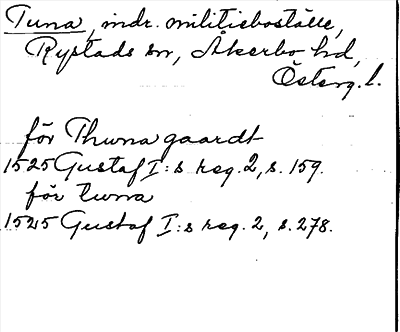 Tuna, indr. militieboställe,
Rystads sn, Åkerbo hd,
Österg. l.
för Thwna gaardt
1525 Gustaf I:s reg. 2, s. 159.
för twna
1525 Gustaf I:s reg. 2, s. 278.